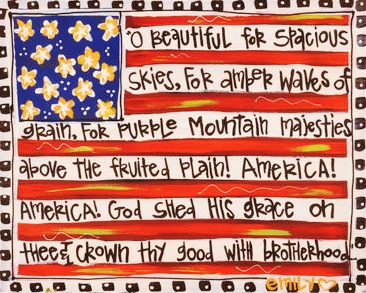 "O Beautiful for Spacious
Skies, For amber Waves of
grain, For Purple Mountain majesties
above the fruited Plain! America!
America! God Shed His grace on
thee & Crown thy good with brotherhood
emily